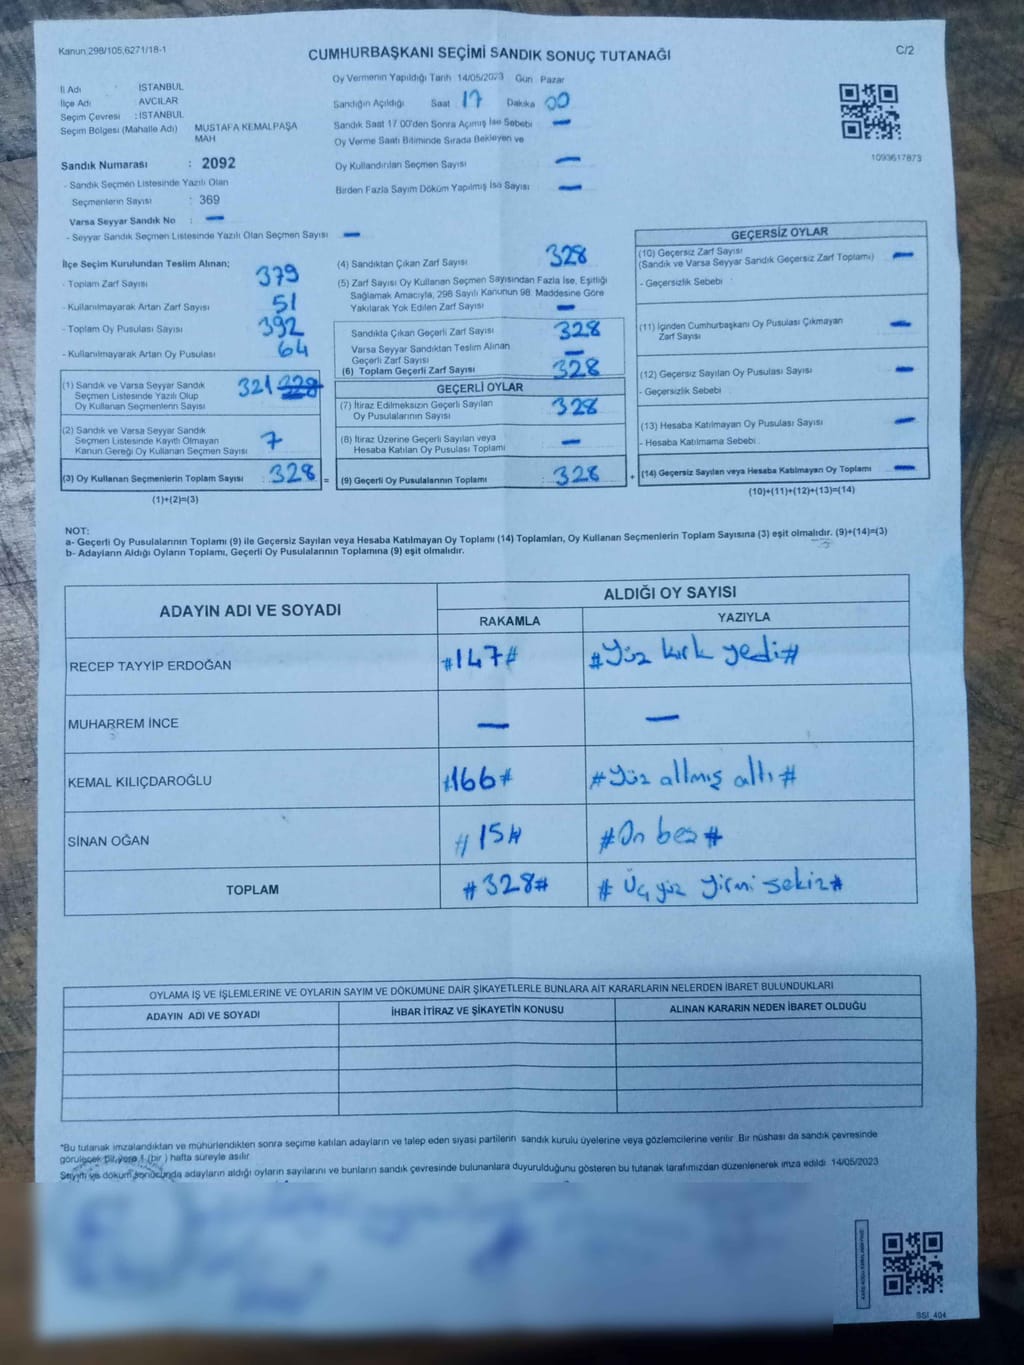 Kanun 298/105,6271/18-1
CUMHURBAŞKANI SEÇİMİ SANDIK SONUÇ TUTANAĞI
C/2
İl Adı İSTANBUL
İlçe Adı AVCILAR
Seçim Çevresi : İSTANBUL
Seçim Bölgesi (Mahalle Adı) MUSTAFA KEMALPAŞA MAH
Sandık Numarası : 2092
- Sandık Seçmen Listesinde Yazılı Olan
Seçmenlerin Sayısı : 369
Varsa Seyyar Sandık No : —
- Seyyar Sandık Seçmen Listesinde Yazılı Olan Seçmen Sayısı —
Oy Vermenin Yapıldığı Tarih 14/05/2023 Gün Pazar
Sandığın Açıldığı Saat 17 Dakika 00
Sandık Saat 17.00'den Sonra Açılmış İse Sebebi —
Oy Verme Saati Bitiminde Sırada Bekleyen ve
Oy Kullandırılan Seçmen Sayısı —
Birden Fazla Sayım Döküm Yapılmış İse Sayısı —
1093617873
İlçe Seçim Kurulundan Teslim Alınan;
- Toplam Zarf Sayısı 379
- Kullanılmayarak Artan Zarf Sayısı 51
- Toplam Oy Pusulası Sayısı 392
- Kullanılmayarak Artan Oy Pusulası 64
(1) Sandık ve Varsa Seyyar Sandık
Seçmen Listesinde Yazılı Olup
Oy Kullanan Seçmenlerin Sayısı 321 328
(2) Sandık ve Varsa Seyyar Sandık
Seçmen Listesinde Kayıtlı Olmayan
Kanun Gereği Oy Kullanan Seçmen Sayısı 7
(3) Oy Kullanan Seçmenlerin Toplam Sayısı : 328 =
(1)+(2)=(3)
(4) Sandıktan Çıkan Zarf Sayısı 328
(5) Zarf Sayısı Oy Kullanan Seçmen Sayısından Fazla İse, Eşitliği
Sağlamak Amacıyla, 298 Sayılı Kanunun 98. Maddesine Göre
Yakılarak Yok Edilen Zarf Sayısı —
Sandıkta Çıkan Geçerli Zarf Sayısı 328
Varsa Seyyar Sandıktan Teslim Alınan
Geçerli Zarf Sayısı —
(6) Toplam Geçerli Zarf Sayısı 328
GEÇERLİ OYLAR
(7) İtiraz Edilmeksizin Geçerli Sayılan
Oy Pusulalarının Sayısı 328
(8) İtiraz Üzerine Geçerli Sayılan veya
Hesaba Katılan Oy Pusulası Toplamı —
(9) Geçerli Oy Pusulalarının Toplamı 328 +
GEÇERSİZ OYLAR
(10) Geçersiz Zarf Sayısı
(Sandık ve Varsa Seyyar Sandık Geçersiz Zarf Toplamı) —
- Geçersizlik Sebebi :
(11) İçinden Cumhurbaşkanı Oy Pusulası Çıkmayan
Zarf Sayısı —
(12) Geçersiz Sayılan Oy Pusulası Sayısı —
- Geçersizlik Sebebi :
(13) Hesaba Katılmayan Oy Pusulası Sayısı —
- Hesaba Katılmama Sebebi :
(14) Geçersiz Sayılan veya Hesaba Katılmayan Oy Toplamı —
(10)+(11)+(12)+(13)=(14)
NOT:
a- Geçerli Oy Pusulalarının Toplamı (9) ile Geçersiz Sayılan veya Hesaba Katılmayan Oy Toplamı (14) Toplamları, Oy Kullanan Seçmenlerin Toplam Sayısına (3) eşit olmalıdır. (9)+(14)=(3)
b- Adayların Aldığı Oyların Toplamı, Geçerli Oy Pusulalarının Toplamına (9) eşit olmalıdır.
ADAYIN ADI VE SOYADI
ALDIĞI OY SAYISI
RAKAMLA YAZIYLA
RECEP TAYYİP ERDOĞAN #147# #Yüz kırk yedi#
MUHARREM İNCE — —
KEMAL KILIÇDAROĞLU #166# #Yüz altmış altı#
SİNAN OĞAN #15# #On beş#
TOPLAM #328# #Üç yüz yirmi sekiz#
OYLAMA İŞ VE İŞLEMLERİNE VE OYLARIN SAYIM VE DÖKÜMÜNE DAİR ŞİKAYETLERLE BUNLARA AİT KARARLARIN NELERDEN İBARET BULUNDUKLARI
ADAYIN ADI VE SOYADI İHBAR İTİRAZ VE ŞİKAYETİN KONUSU ALINAN KARARIN NEDEN İBARET OLDUĞU
*Bu tutanak imzalandıktan ve mühürlendikten sonra seçime katılan adayların ve talep eden siyasi partilerin sandık kurulu üyelerine veya gözlemcilerine verilir. Bir nüshası da sandık çevresinde
görülecek bir yere 1 (bir) hafta süreyle asılır.
Sayım ve döküm sonucunda adayların aldığı oyların sayılarını ve bunların sandık çevresinde bulunanlara duyurulduğunu gösteren bu tutanak tarafımızdan düzenlenerek imza edildi. 14/05/2023
SSİ_404